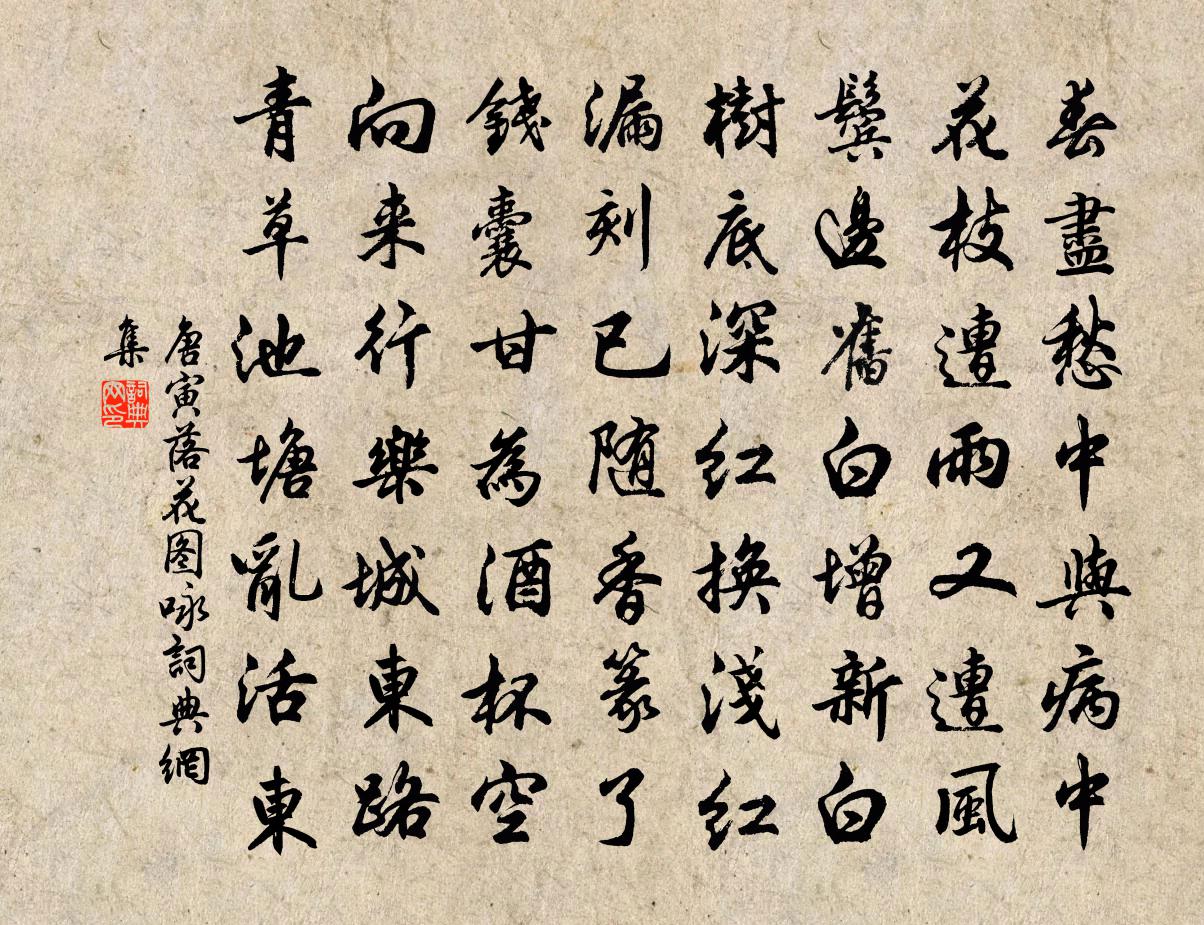 春盡愁中與病中
花枝遭雨又遭風
鬓邊舊白增新白
樹底深紅換淺紅
漏刻已随香篆了
錢囊甘為酒杯空
向来行樂城東路
青草池塘亂活東
唐寅落花图咏詞典網
集
詞典
网印